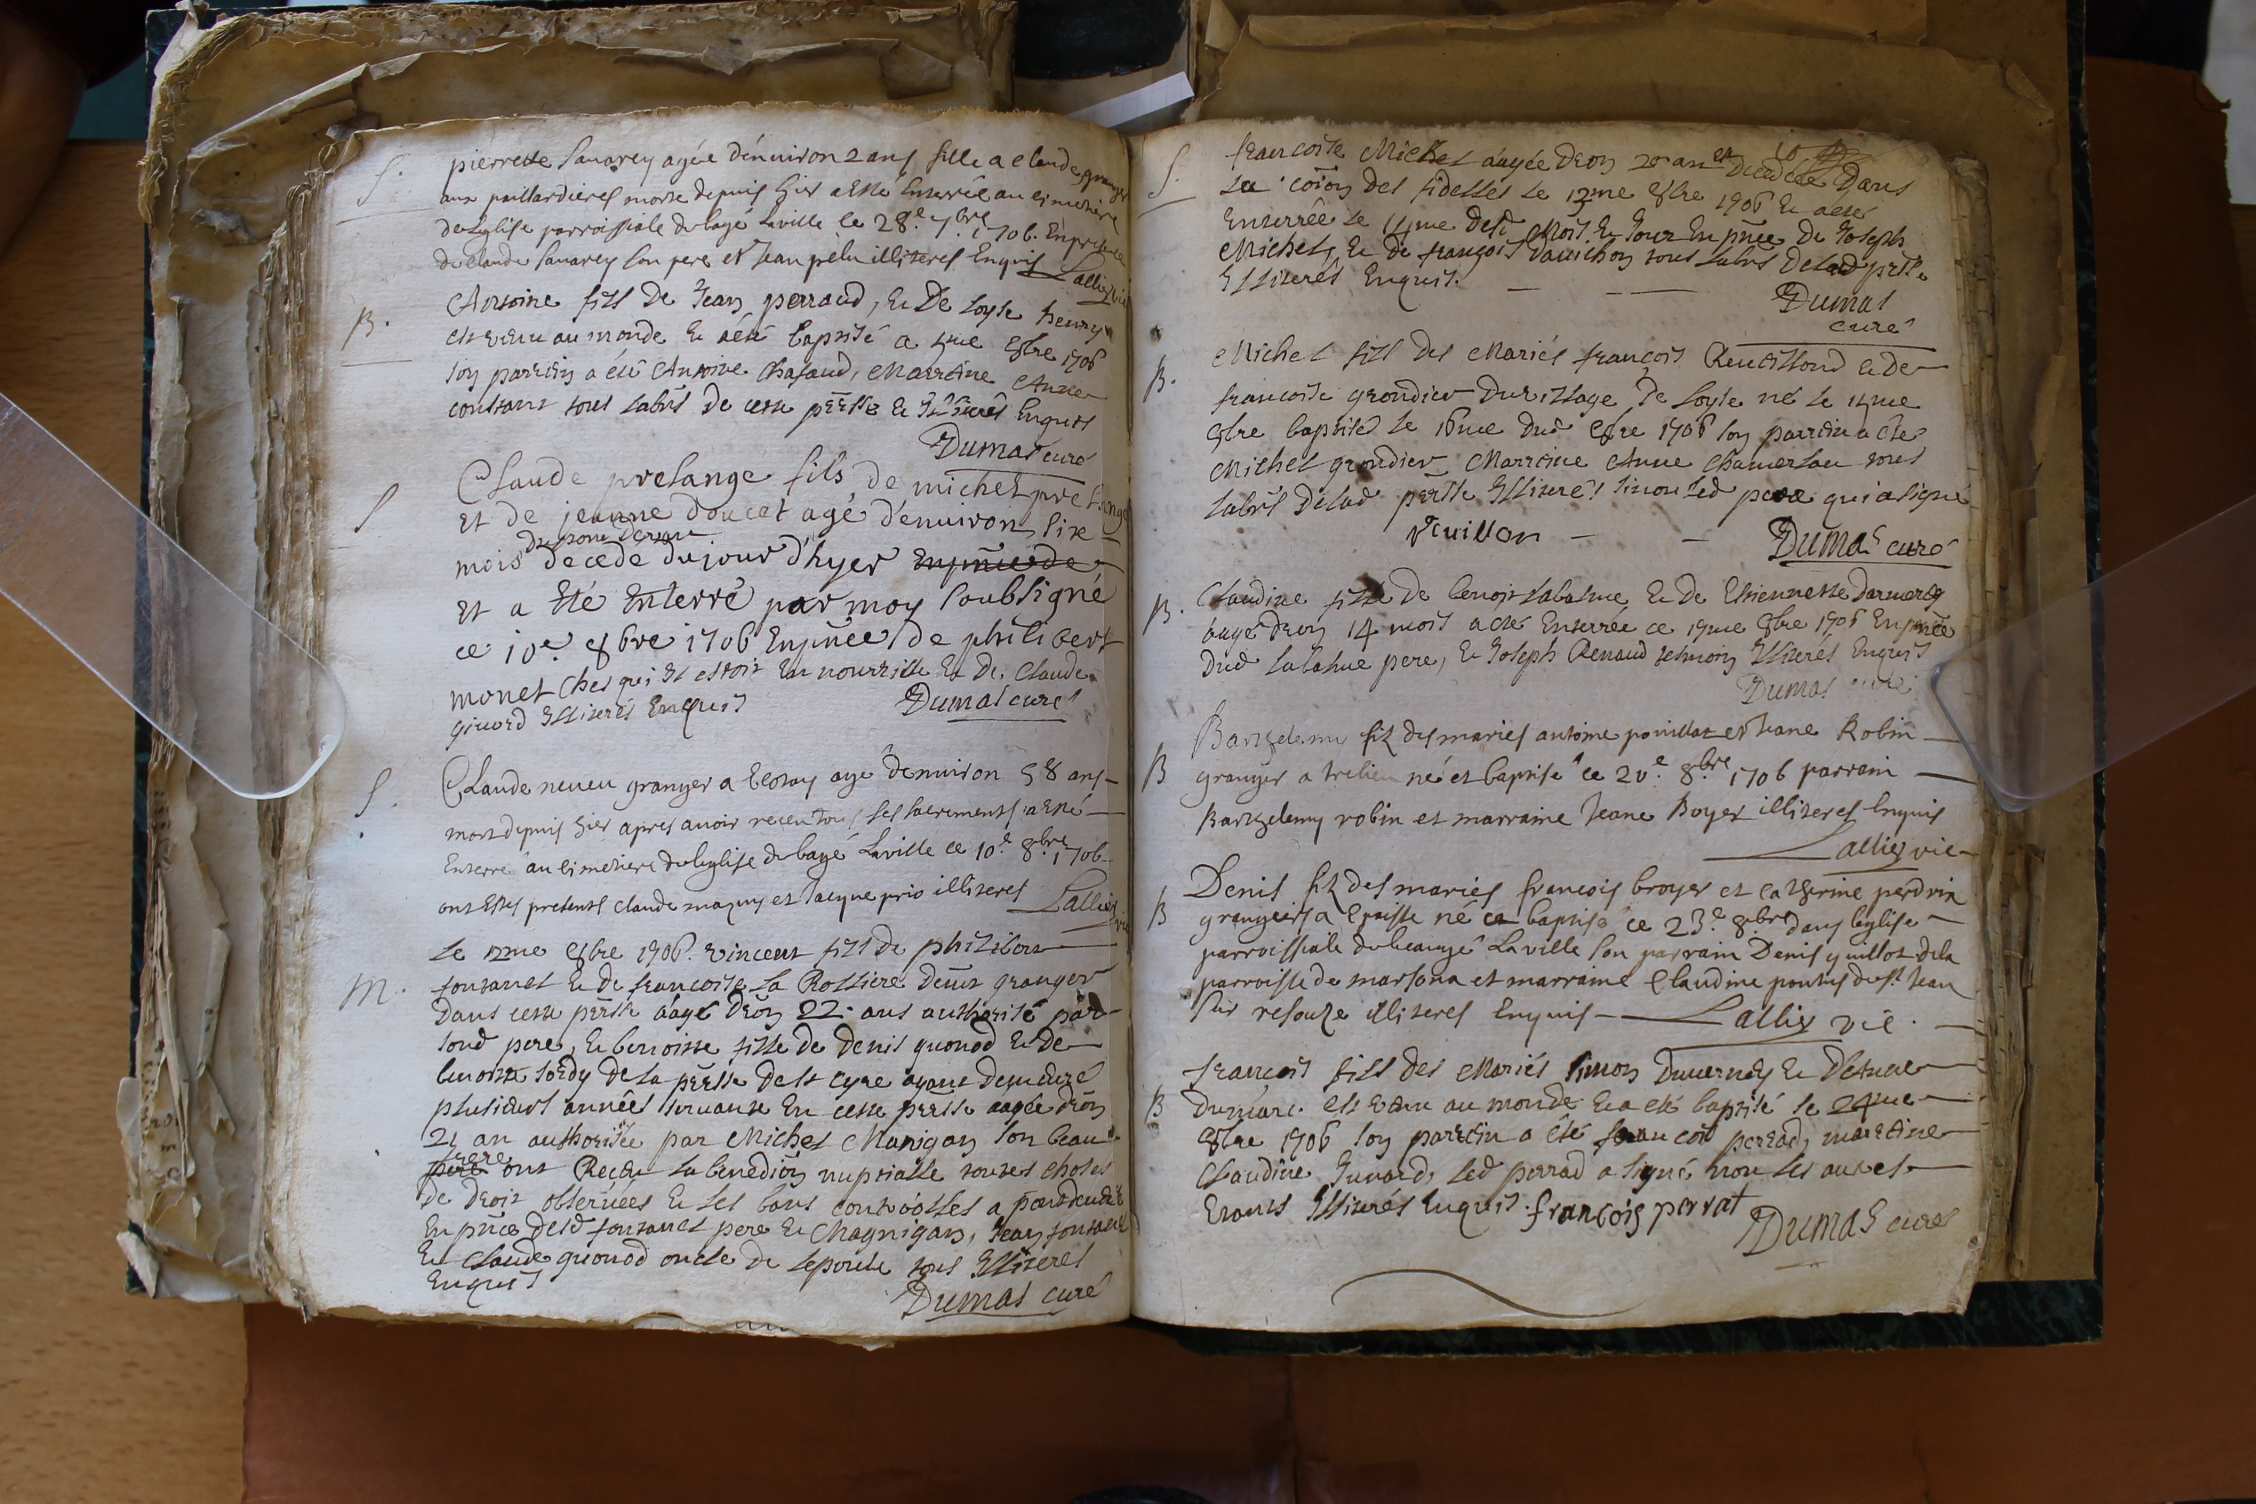 S.
pierrette Savarey agée d'environ 2 ans fille a claude granger
aux paillardieres morte depuis hier a esté Enterrée au cimetiere
de leglise parroissiale de bagé Laville ce 28e 7bre 1706. En presence
de claude Savarey son pere et Jean pelu illiteres Enquis Lallier vic
B.
Antoine fils de Jean perraud, & De Loyse henry
est venu au monde & aété baptisé a 4me 8bre 1706
son parrein a été Antoine Chafaud, Marreine Anne
constant tous labrs de cette perSse & Illiterés Enquis
Dumas curé
S
Claude prelange fils de michel prelange
et de jeanne doucet agé denuiron six
mois decede du jour d'hyer Enpnce de
et a eté Enterré par moy soubsigné
ce 10e 8bre 1706 Enpnce de philibert
monet Ches qui Il estoit En nourrisse & De Claude
giuord Illiterés Enquis
Dumas curé
S.
Claude neveu granger a agé denuiron 58 ans
mort depuis hier apres avoir receu tous ses sacrements a esté
Enterré au cimetiere de leglise de bagé Laville ce 10e 8bre 1706
ont Estes presents claude et Jacque prio illiteres Lallier vic
M.
Le 12me 8bre 1706. vincent fils de philibert
fontanel & de francoise La Rossiere deuts granger
Dans cette persse aagé Deon 22. ans authorisé par
sond pere, & benoitte fille de Denis quonod & de
benoitte sordy de la persse de st cyre ayant demeuré
plusieurs années servante En cette persse aagée Deon
21 an authorisée par Michel Manigan son beau
frere
pere ont Receu la benediõn nuptialle toutes choses
de droit observées & les bans controolles a
En pnce desd fontanel pere & Magnigan, Jean fontanel
& Claude quonod oncle de lepouse tous Illiteres
Enquis
Dumas curé
S.
francoise Michel aagée Deon 20 an est Decedée Dans
La coion des fidelles le 12me 8bre 1706 & aeté
Enterrée le 14me desd Mois. & Jour En pnce De Joseph
Michel, & de françois Dauichon tous labrs Delad psse
Illiterés Enquis.
Dumas
curé
B.
Michel fils des Mariés francois & de
francoise grondier Du village de Loyse né le 14me
8bre baptisé le 16me Dud 8bre 1706 son parrein a eté
Michel grondier Marreine Anne tous
labrs Delad persse Illiterés sinon led pere qui a signé
reuillon
Dumas curé
B.
Claudine fille de benoit Labatue & de Estiennette
aagé Deon 14 mois a eté Enterrée ce 19me 8bre 1706 Enpnce
Dud Labatue pere, & Joseph Renaud temoin Illiterés Enquis
Dumas curé
B
Barthelemi fils des mariés antoine pouillat et Jeane Robin
granger a né et baptisé ce 20e 8bre 1706 parrain
Barthelemy robin et marraine Jeane Boyer illiteres Enquis
Lallier vic
B
Denis fils des mariés françois broyer et Catherine perdrix
grangers a Epaisse né et baptisé ce 23e 8bre dans leglise
parroissiale de beaugé Laville son parrain Denis guillot dela
parroisse de marsona et marraine Claudine de st Jean
sur resouze illiteres Enquis Lallier vic.
B
francois fils des Mariés simon Duuernay & DAnne
Dumarc. est venu au monde & a eté baptisé le 24me
8bre 1706 son parrein a été francois perrad, marreine
Claudine led perrad a signé non les autres
Enquis Illiterés Enquis. françois perrat
Dumas curé